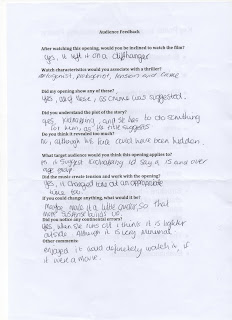 Audience Feedback
After watching this opening, would you be inclined to watch the film?
yes, it left it on a cliffhanger
Which characteristics would you associate with a thriller?
antagonist, protagonist, tension and crime.
Did my opening show any of these?
yes, any these, as crime was suggested.
Did you understand the plot of the story?
yes, kidnapping, and she has to do something
for him, as the title suggests
Do you think it revealed too much?
no, although the face could have been hidden.
What target audience would you think this opening applies to?
it suggest kidnapping id say it is any over
age group
Did the music create tension and work with the opening?
yes, it changed at an appropriate
time too.
If you could change anything, what would it be?
maybe make it a little over, so that
more suspense builds up.
Did you notice any continuity errors?
yes, when she runs out I think it is lighter
outside. Although it is very minimal.
Other comments:
enjoyed it would definitely watch it, if
it were a movie.